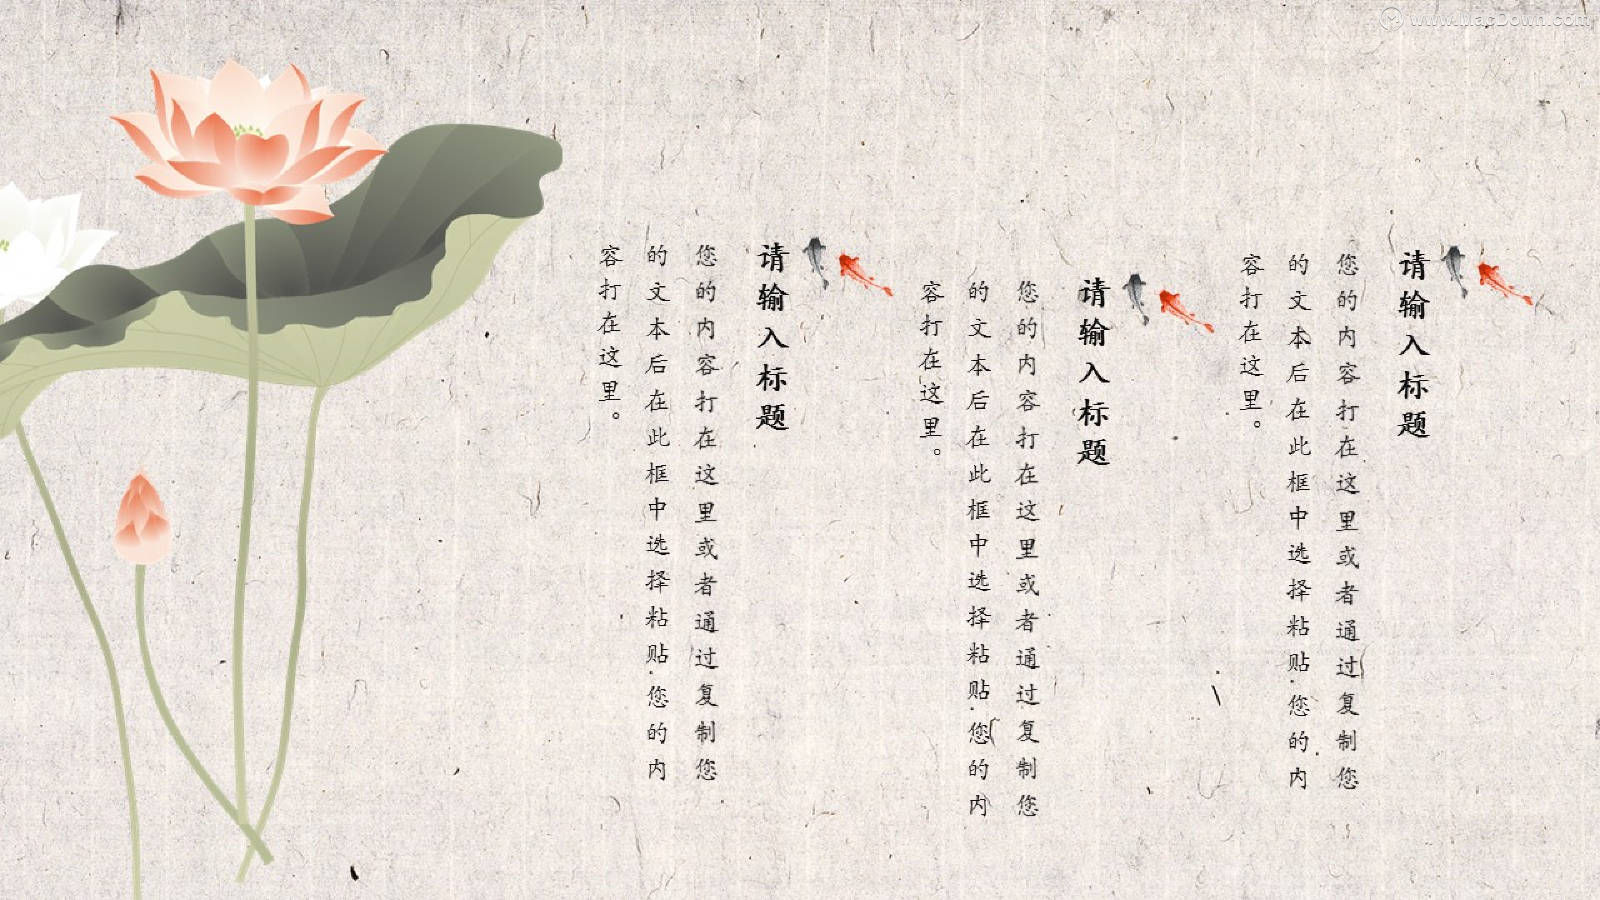 www.MacDown.com
请输入标题
您的内容打在这里或者通过复制您
的文本后在此框中选择粘贴.您的内
容打在这里。
请输入标题
您的内容打在这里或者通过复制您
的文本后在此框中选择粘贴.您的内
容打在这里。
请输入标题
您的内容打在这里或者通过复制您
的文本后在此框中选择粘贴.您的内
容打在这里。